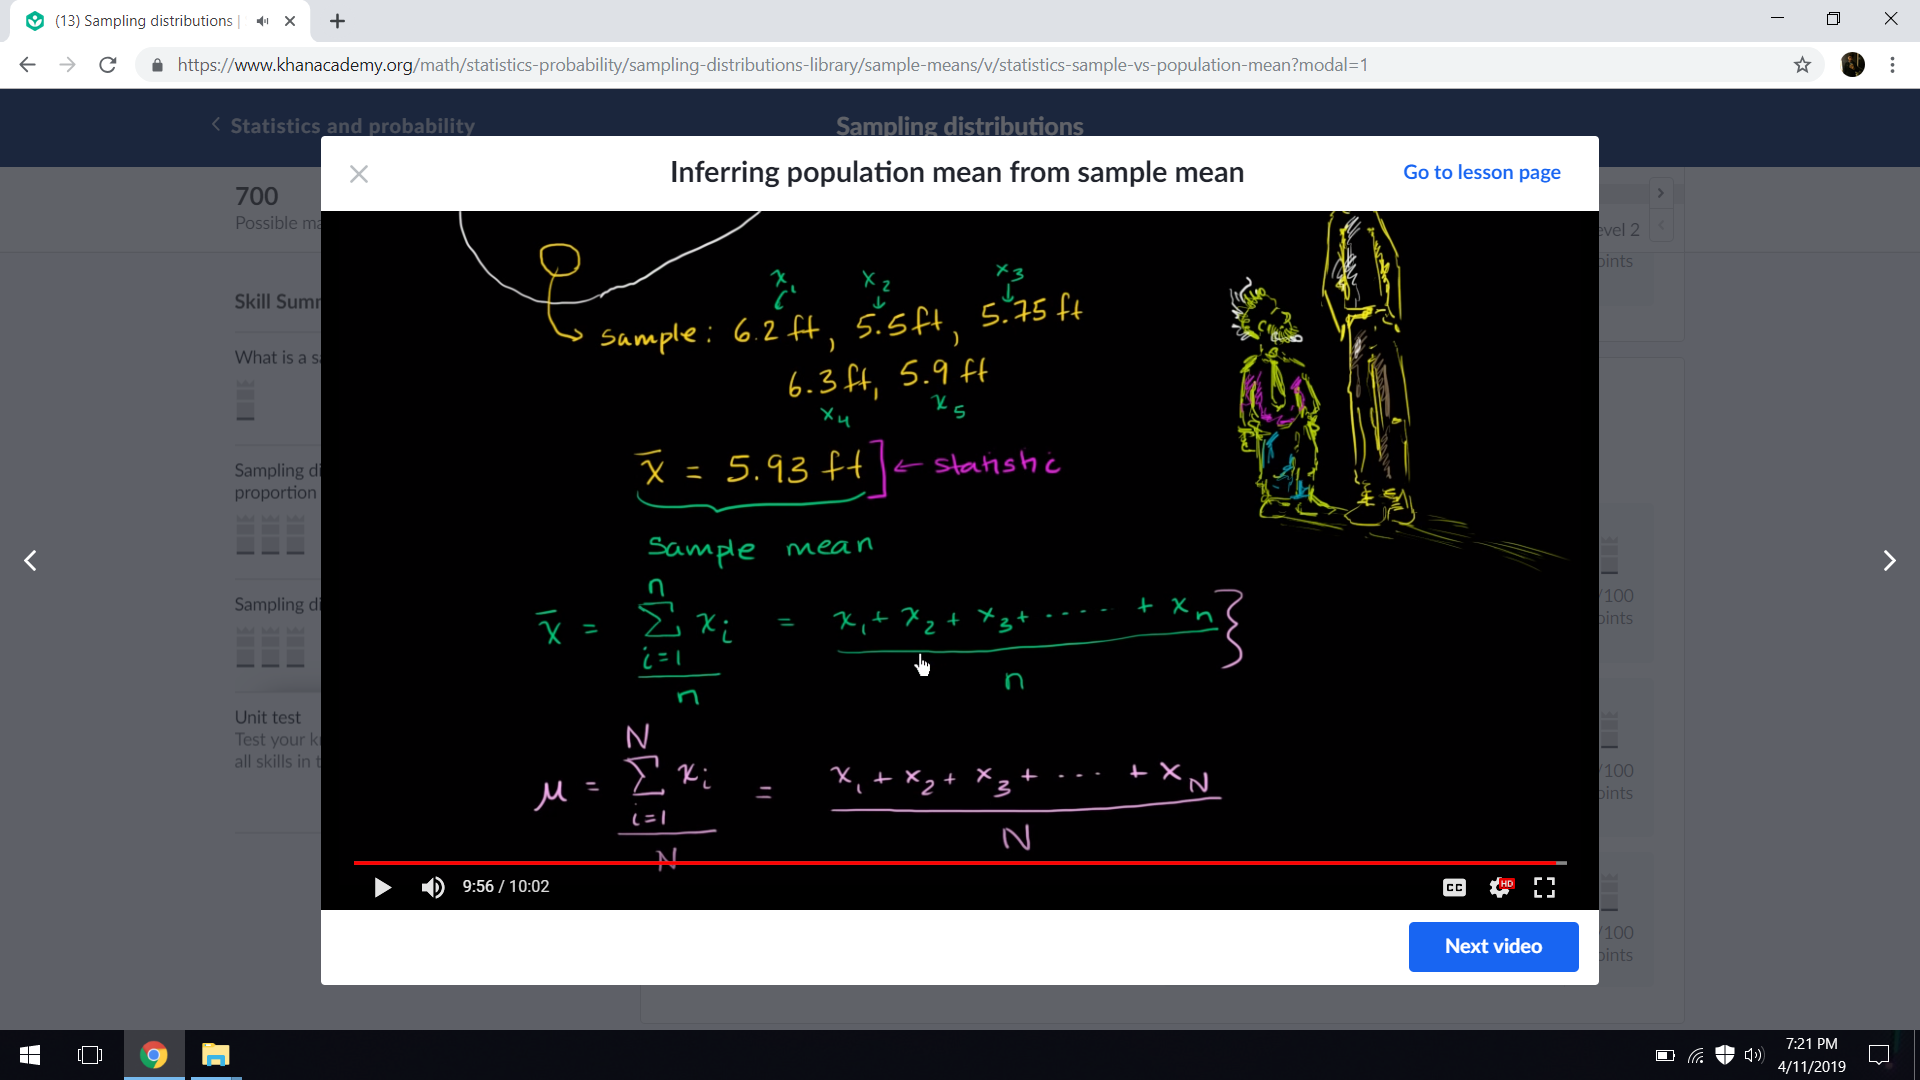 (13) Sampling distributions |
https://www.khanacademy.org/math/statistics-probability/sampling-distributions-library/sample-means/v/statistics-sample-vs-population-mean?modal=1
Statistics and probability
Sampling distributions
700
Possible ma
evel 2
oints
Skill Summ
What is a sa
Sampling di
proportion
Sampling di
Unit test
Test your k
all skills in t
/100
oints
/100
oints
/100
oints
Inferring population mean from sample mean
Go to lesson page
x₁ x₂ x₃
sample: 6.2 ft, 5.5 ft, 5.75 ft
6.3 ft, 5.9 ft
x₄ x₅
x̄ = 5.93 ft ] ← statistic
sample mean
n
x̄ = Σ xᵢ = x₁ + x₂ + x₃ + ····· + xₙ }
i=1
n n
N
μ = Σ xᵢ = x₁ + x₂ + x₃ + ··· + x_N
i=1
N N
9:56 / 10:02
CC
HD
Next video
7:21 PM
4/11/2019